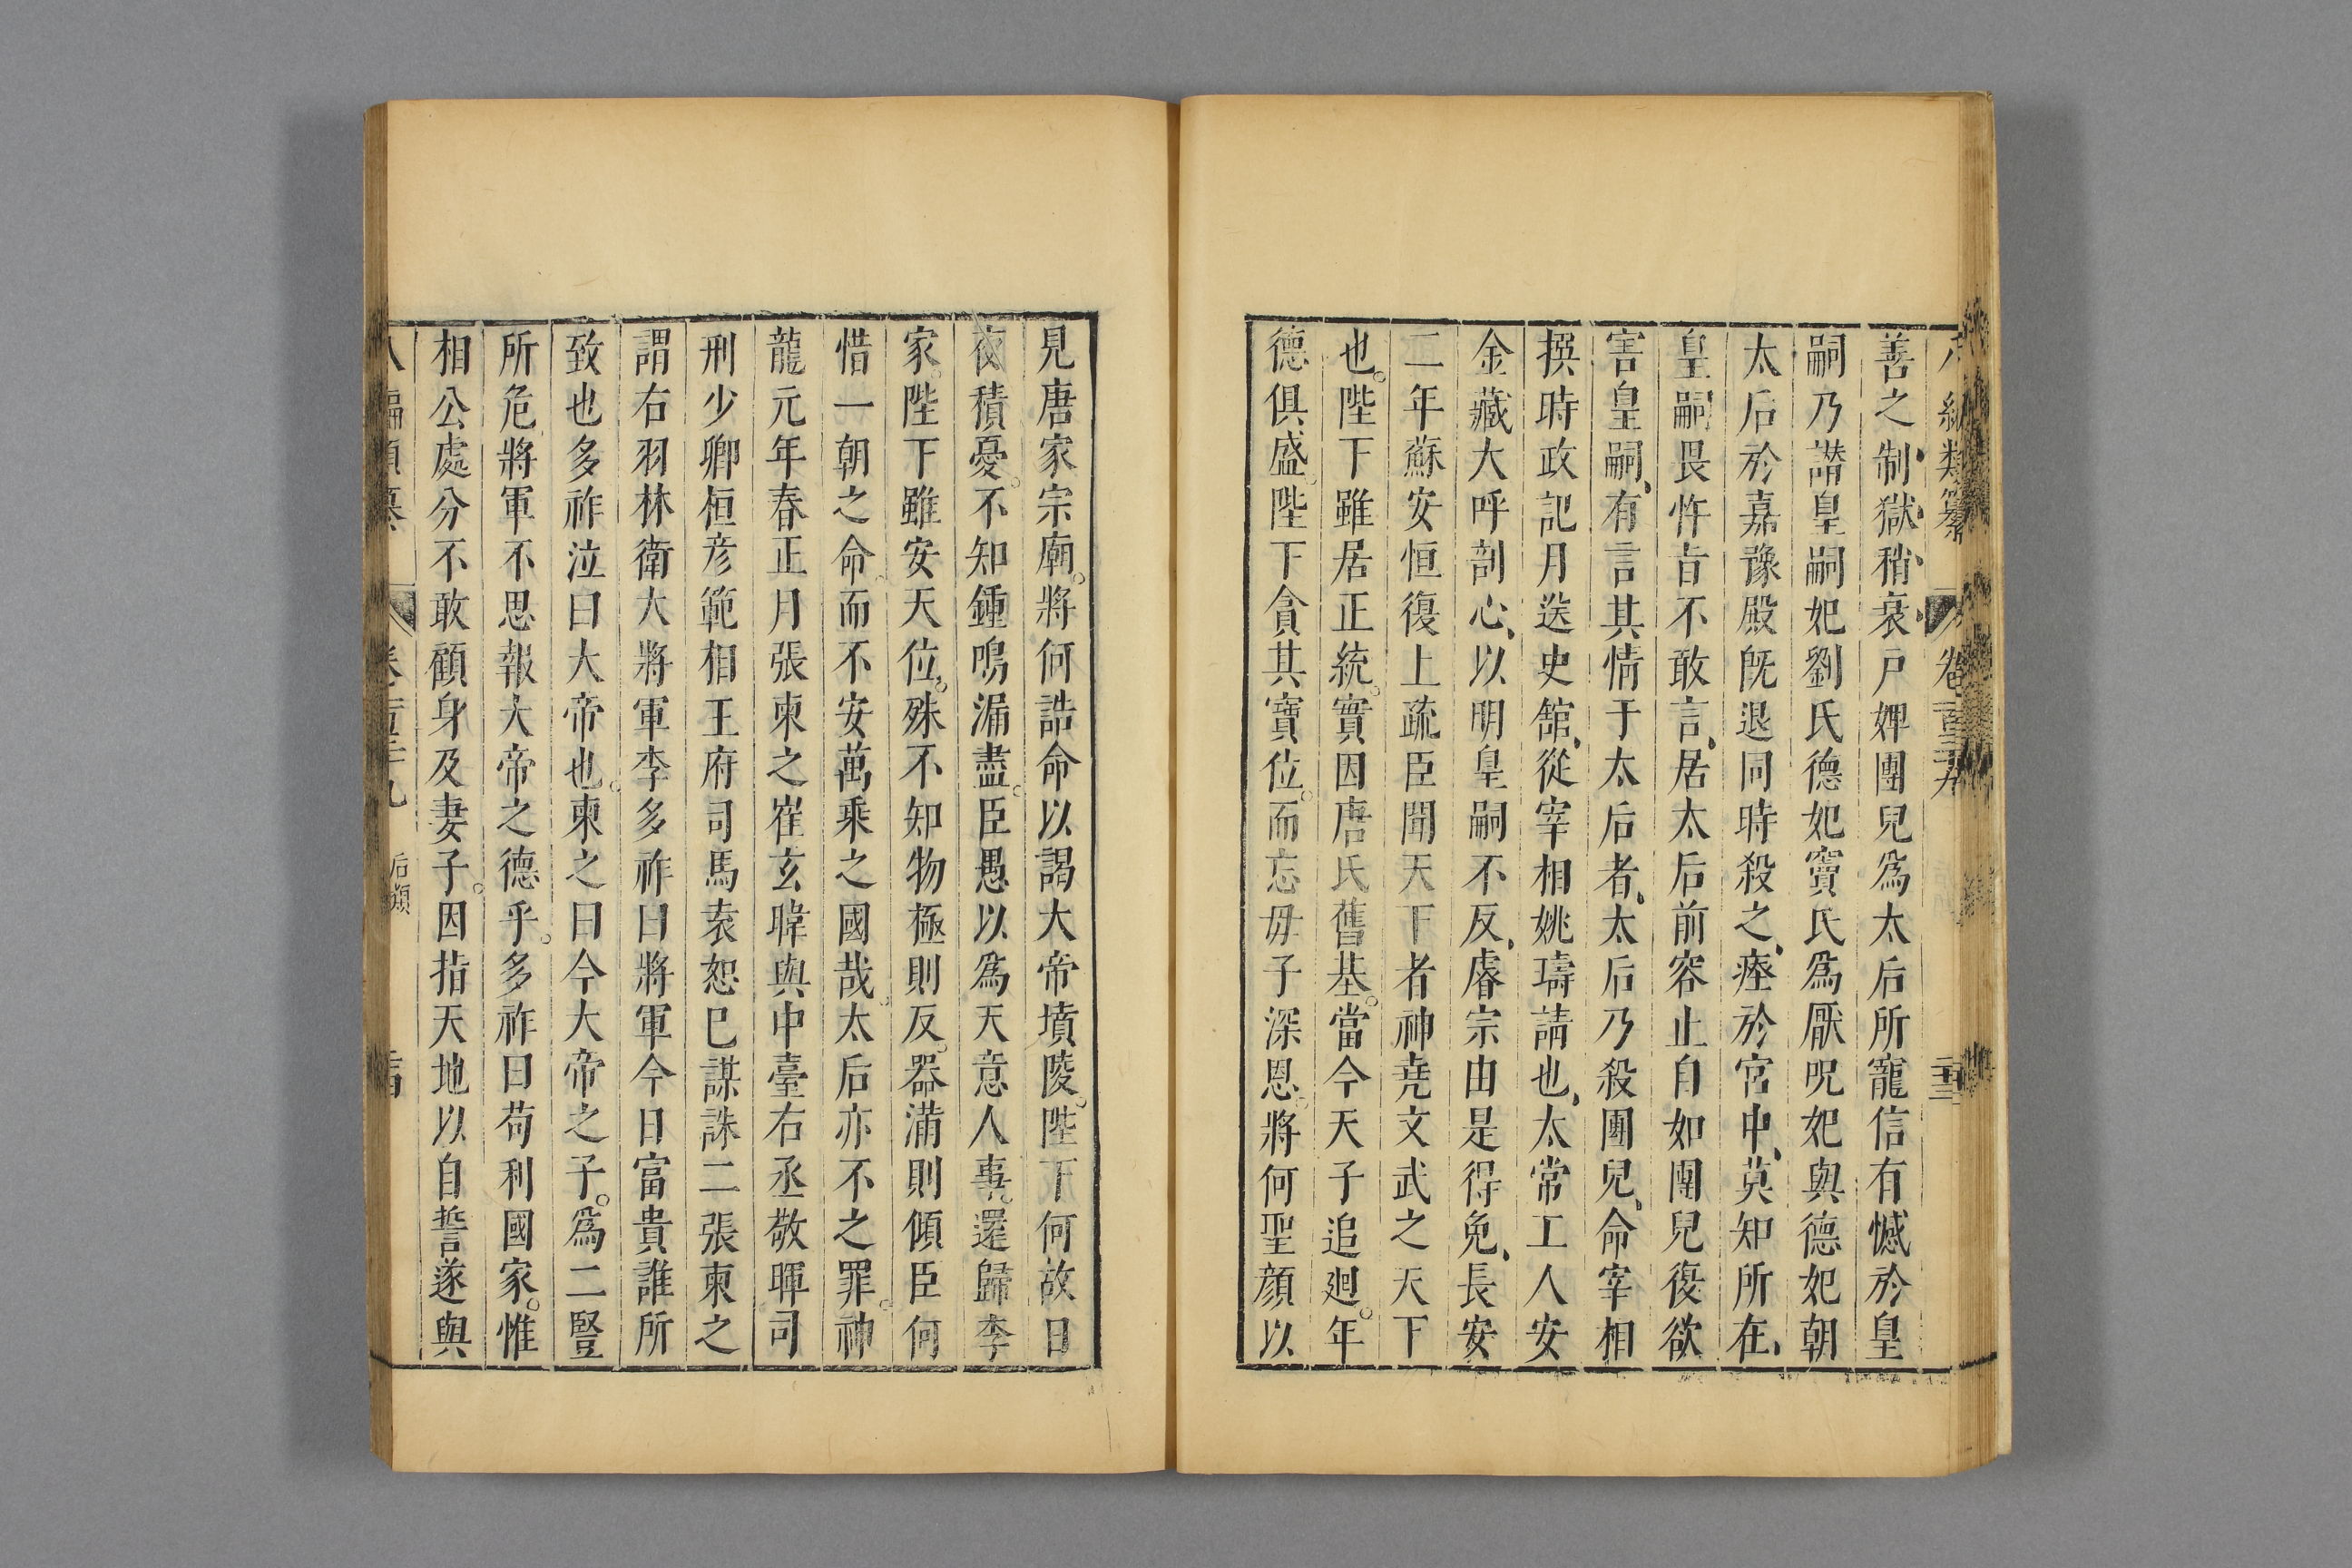 編類纂 卷一百三十九 二十三
善之制獄稍衰戸婢團兒爲太后所寵信有憾於皇
嗣乃譖皇嗣妃劉氏德妃竇氏爲厭呪妃與德妃朝
太后於嘉豫殿既退同時殺之瘞於宮中莫知所在
皇嗣畏忤旨不敢言居太后前容止自如團兒復欲
害皇嗣有言其情于太后者太后乃殺團兒命宰相
撰時政記月送史館從宰相姚璹請也太常工人安
金藏大呼剖心以明皇嗣不反睿宗由是得免長安
二年蘇安恒復上疏臣聞天下者神堯文武之天下
也陛下雖居正統實因唐氏舊基當今天子追迴年
德俱盛陛下貪其寶位而忘母子深恩將何聖顔以
見唐家宗廟將何誥命以謁大帝墳陵陛下何故日
夜積憂不知鍾鳴漏盡臣愚以爲天意人事還歸李
家陛下雖安天位殊不知物極則反器滿則傾臣何
惜一朝之命而不安萬乘之國哉太后亦不之罪神
龍元年春正月張柬之崔玄暐與中臺右丞敬暉司
刑少卿桓彦範相王府司馬袁恕已謀誅二張柬之
謂右羽林衛大將軍李多祚曰將軍今日富貴誰所
致也多祚泣曰大帝也柬之曰今大帝之子爲二豎
所危將軍不思報大帝之德乎多祚曰苟利國家惟
相公處分不敢顧身及妻子因指天地以自誓遂與
八編類纂 卷一百三十九 后類 二十四